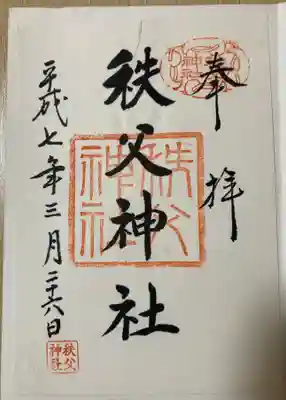 奉拝
秩父神社
平成七年三月二十六日
秩父神社
秩父神社